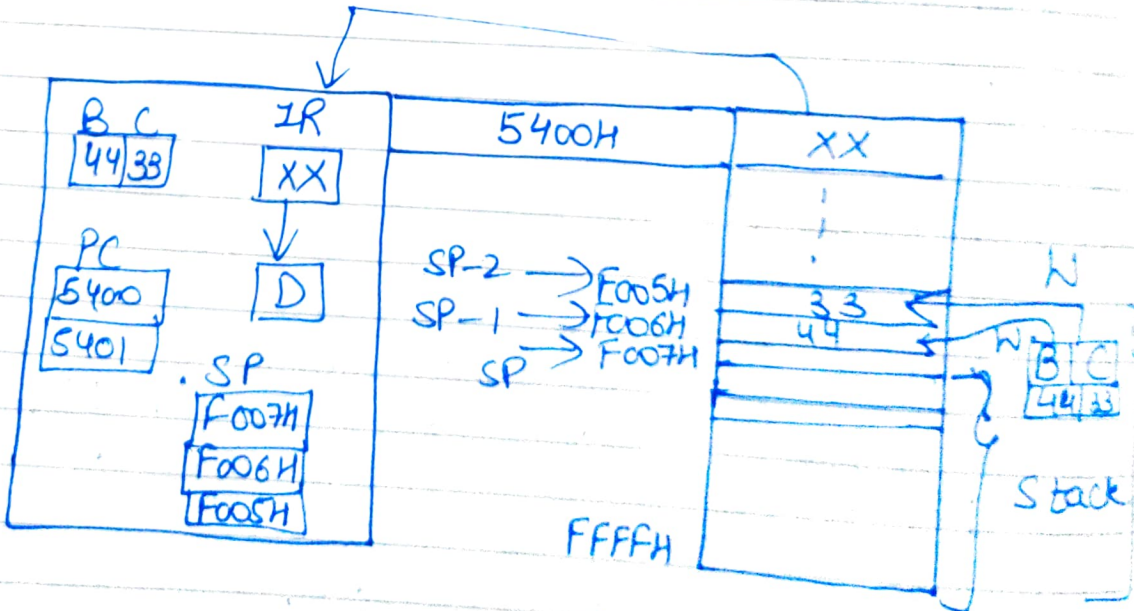 B C
44 33
IR
XX
D
PC
5400
5401
SP
F007H
F006H
F005H
5400H
XX
SP-2
F005H
33
SP-1
F006H
44
SP
F007H
FFFFH
W
W
B C
44 33
Stack